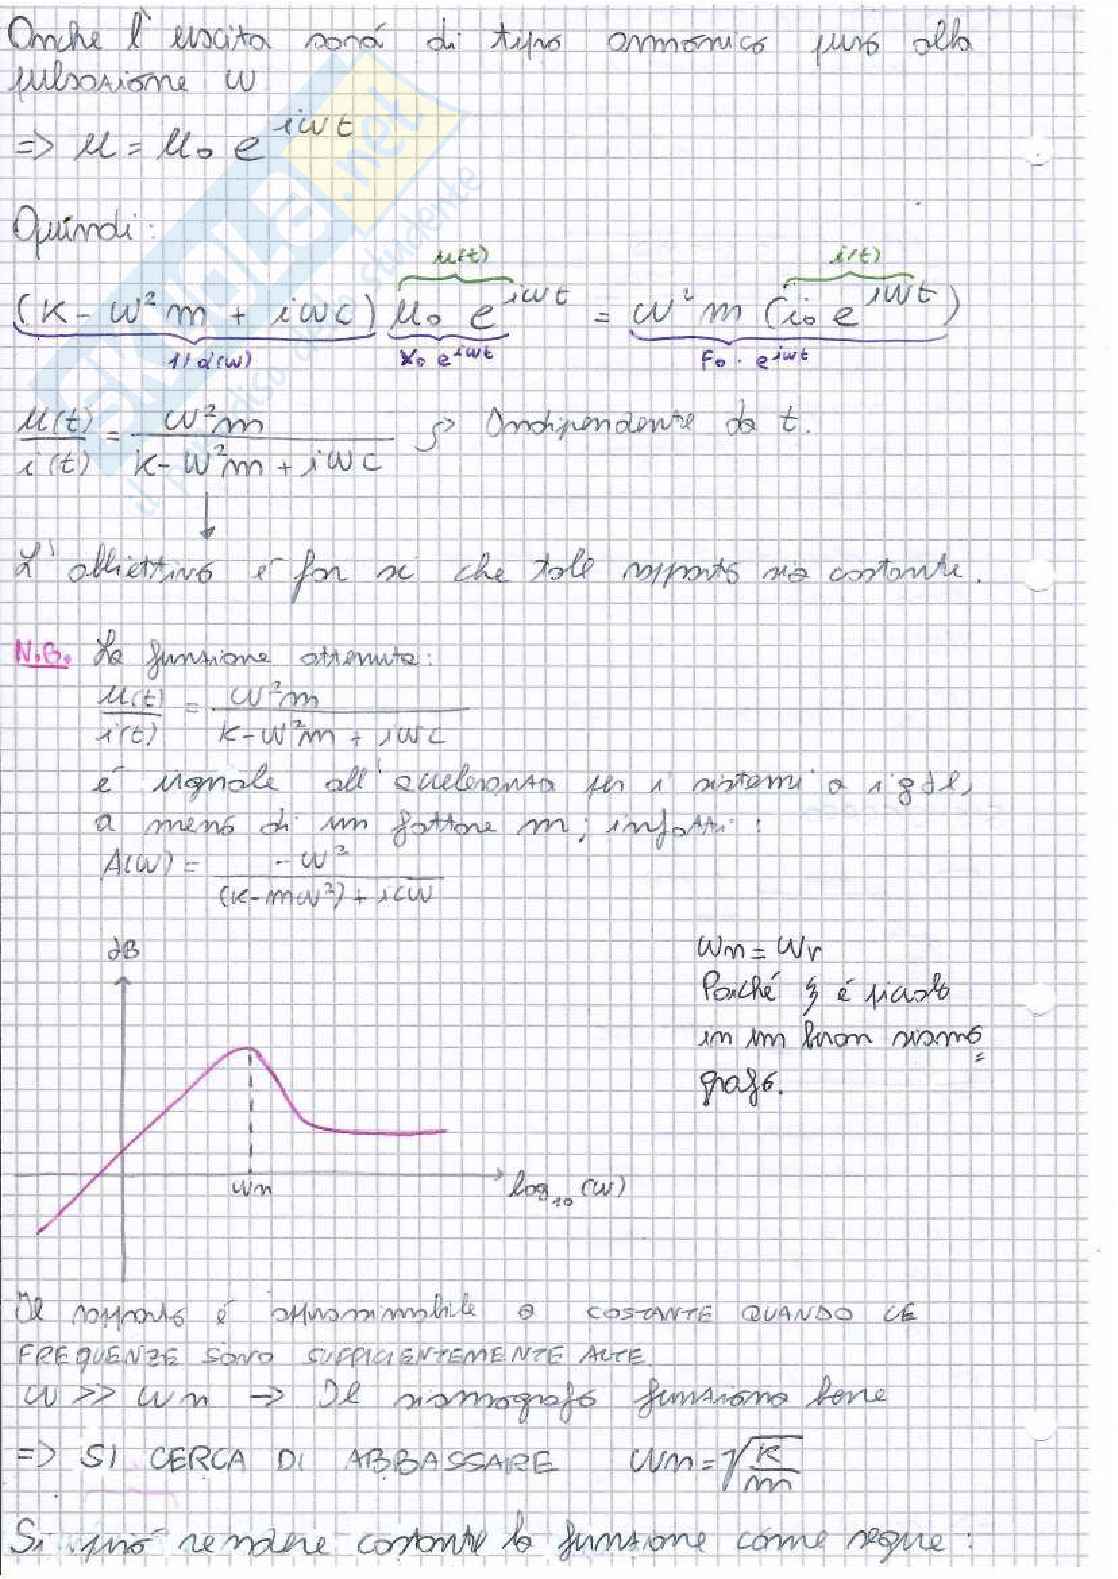 Anche l'uscita sarà di tipo armonico puro alla
pulsazione ω
=> u = u₀ e^{iωt}
Quindi:
u(t) i(t)
(K - ω²m + iωc) u₀ e^{iωt} = ω²m (i₀ e^{iωt})
1/α(ω) x₀ e^{iωt} F₀ · e^{iωt}
u(t)/i(t) = ω²m / (K - ω²m + iωc) Indipendente da t.
L'obiettivo è far sì che tale rapporto sia costante.
N.B. La funzione ottenuta:
u(t)/i(t) = ω²m / (K - ω²m + iωc)
è uguale all'acceleranza per i sistemi a 1 gdl,
a meno di un fattore m; infatti:
A(ω) = -ω² / ((K - mω²) + icω)
dB
ωn = ωr
Poiché ξ è piccolo
in un buon sismo=
grafo.
ωn
log₁₀(ω)
Il rapporto è approssimabile a COSTANTE QUANDO LE
FREQUENZE SONO SUFFICIENTEMENTE ALTE.
ω >> ωn → Il sismografo funziona bene
=> SI CERCA DI ABBASSARE ωn = √(K/m)
Si può rendere costante la funzione come segue:
SKUOLA.net
il paradiso dello studente